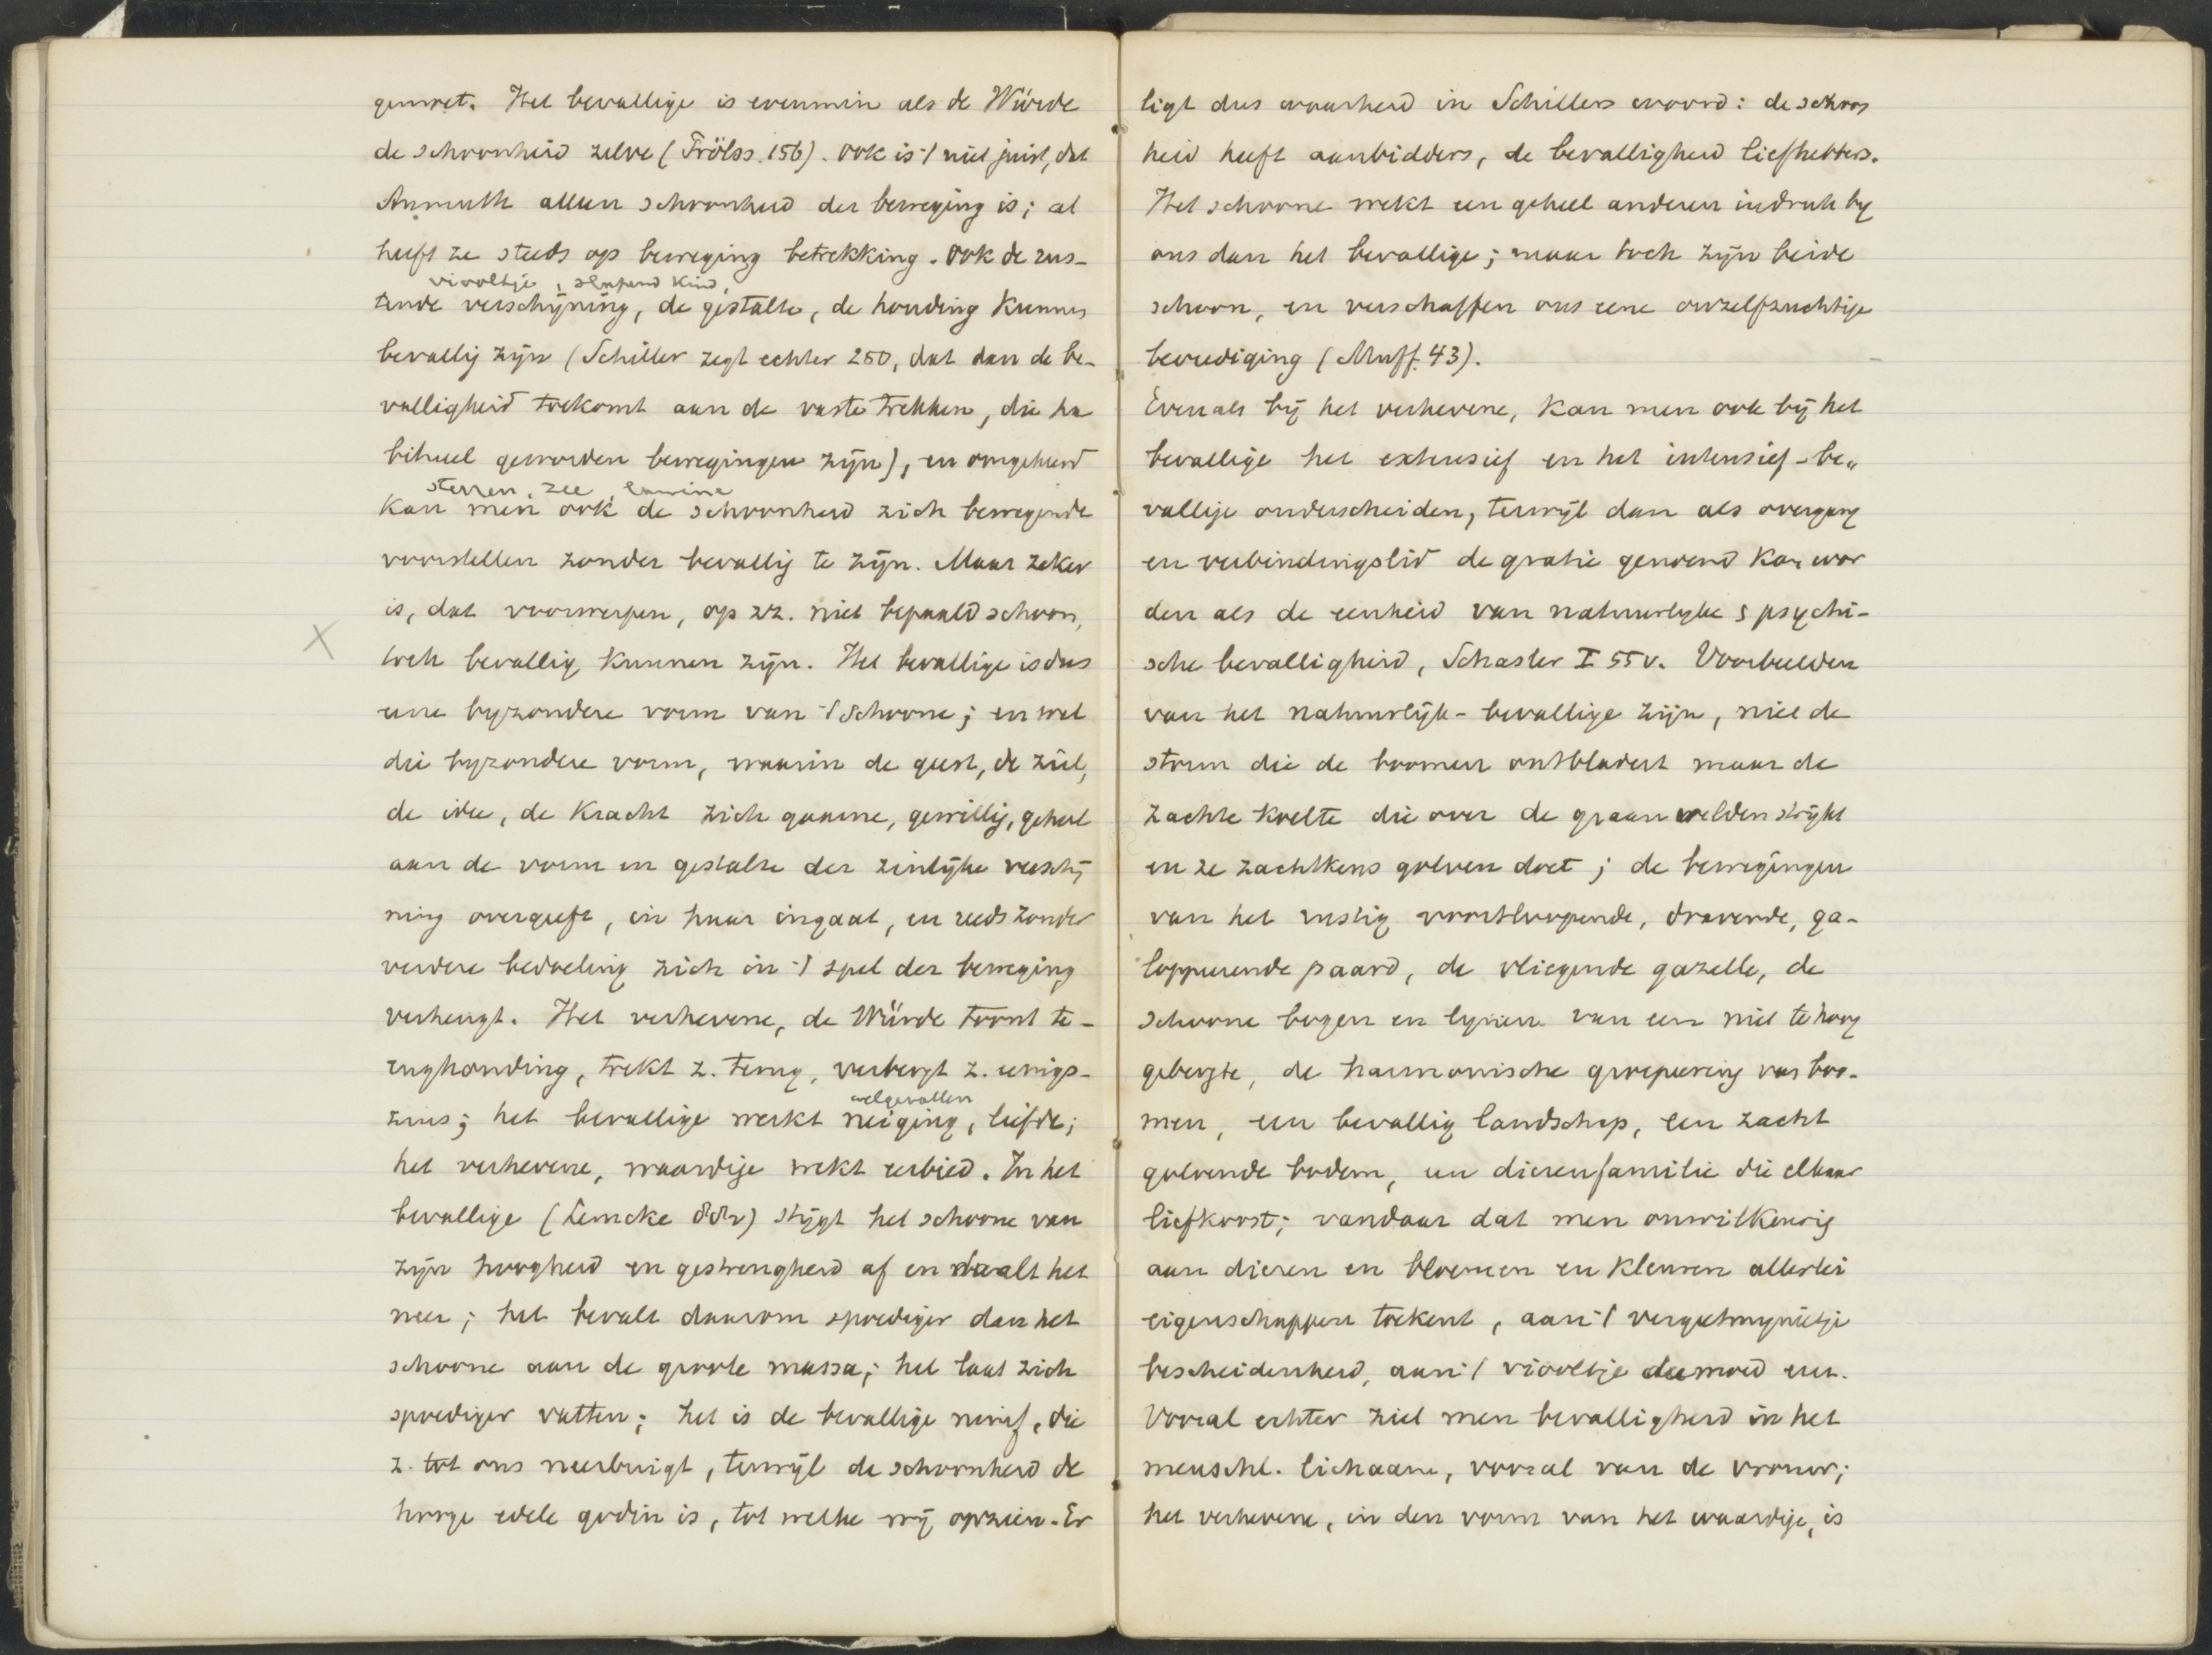 geniest. Het bevallige is evenmin als de Würde
de schoonheid zelve (Frölss. 156). Ook is 't niet juist, dat
Anmuth alleen schoonheid der beweging is; al
heeft ze steeds op beweging betrekking. Ook de rus-
viooltje, slapend kind,
tende verschijning, de gestalte, de houding kunnen
bevallig zijn (Schiller zegt echter 250, dat dan de be-
valligheid toekomt aan de vaste trekken, die ha
bitueel geworden bewegingen zijn), en omgekeerd
sterren, zee, lawine
kan men ook de schoonheid zich bewegende
voorstellen zonder bevallig te zijn. Maar zeker
is, dat voorwerpen, op zz. niet bepaald schoon,
toch bevallig kunnen zijn. Het bevallige is dus
eene byzondere vorm van 't Schoone; en wel
die byzondere vorm, waarin de geest, de ziel,
de idee, de kracht zich gaarne, gewillig, geheel
aan de vorm en gestalte der zinlijke verschij
ning overgeeft, in haar ingaat, en reeds zonder
verdere bedoeling zich in 't spel der beweging
verheugt. Het verhevene, de Würde toont te-
rughouding, trekt z. terug, verbergt z. eenigs-
welgevallen
zins; het bevallige werkt neiging, liefde;
het verhevene, waardige wekt eerbied. In het
bevallige (Lemcke 88v) stijgt het schoone van
zijn hoogheid en gestrengheid af en daalt het
neer; het bevalt daarom spoediger dan het
schoone aan de groote massa; het laat zich
spoediger vatten; het is de bevallige nimf, die
z. tot ons neerbuigt, terwijl de schoonheid de
hooge edele godin is, tot welke wij opzien. Er
ligt dus waarheid in Schillers woord: de schoon
heid heeft aanbidders, de bevalligheid liefhebbers.
Het schoone wekt een geheel anderen indruk by
ons dan het bevallige; maar toch zijn beide
schoon, en verschaffen ons eene onzelfzuchtige
bevrediging (Muff. 43).
Evenals bij het verhevene, kan men ook bij het
bevallige het extensief en het intensief-be„
vallige onderscheiden, terwijl dan als overgang
en verbindingslid de gratie genoemd kan wor
den als de eenheid van natuurlyke & psychi-
sche bevalligheid, Schasler I 55v. Voorbeelden
van het natuurlijk-bevallige zijn, niet de
storm die de boomen ontbladert maar de
zachte koelte die over de graanvelden strijkt
en ze zachtkens golven doet; de bewegingen
van het rustig voortloopende, dravende, ga-
loppeerende paard, de vliegende gazelle, de
schoone bogen en lynen van een niet te hoog
gebergte, de harmonische groepeering van boo-
men, een bevallig landschap, een zacht
golvende bodem, een dierenfamilie die elkaar
liefkoost; vandaar dat men onwillkeurig
aan dieren en bloemen en kleuren allerlei
eigenschappen toekent, aan 't vergeetmynietje
bescheidenheid, aan 't viooltje deemoed enz.
Vooral echter ziet men bevalligheid in het
menschl. lichaam, vooral van de vrouw;
het verhevene, in den vorm van het waardige, is